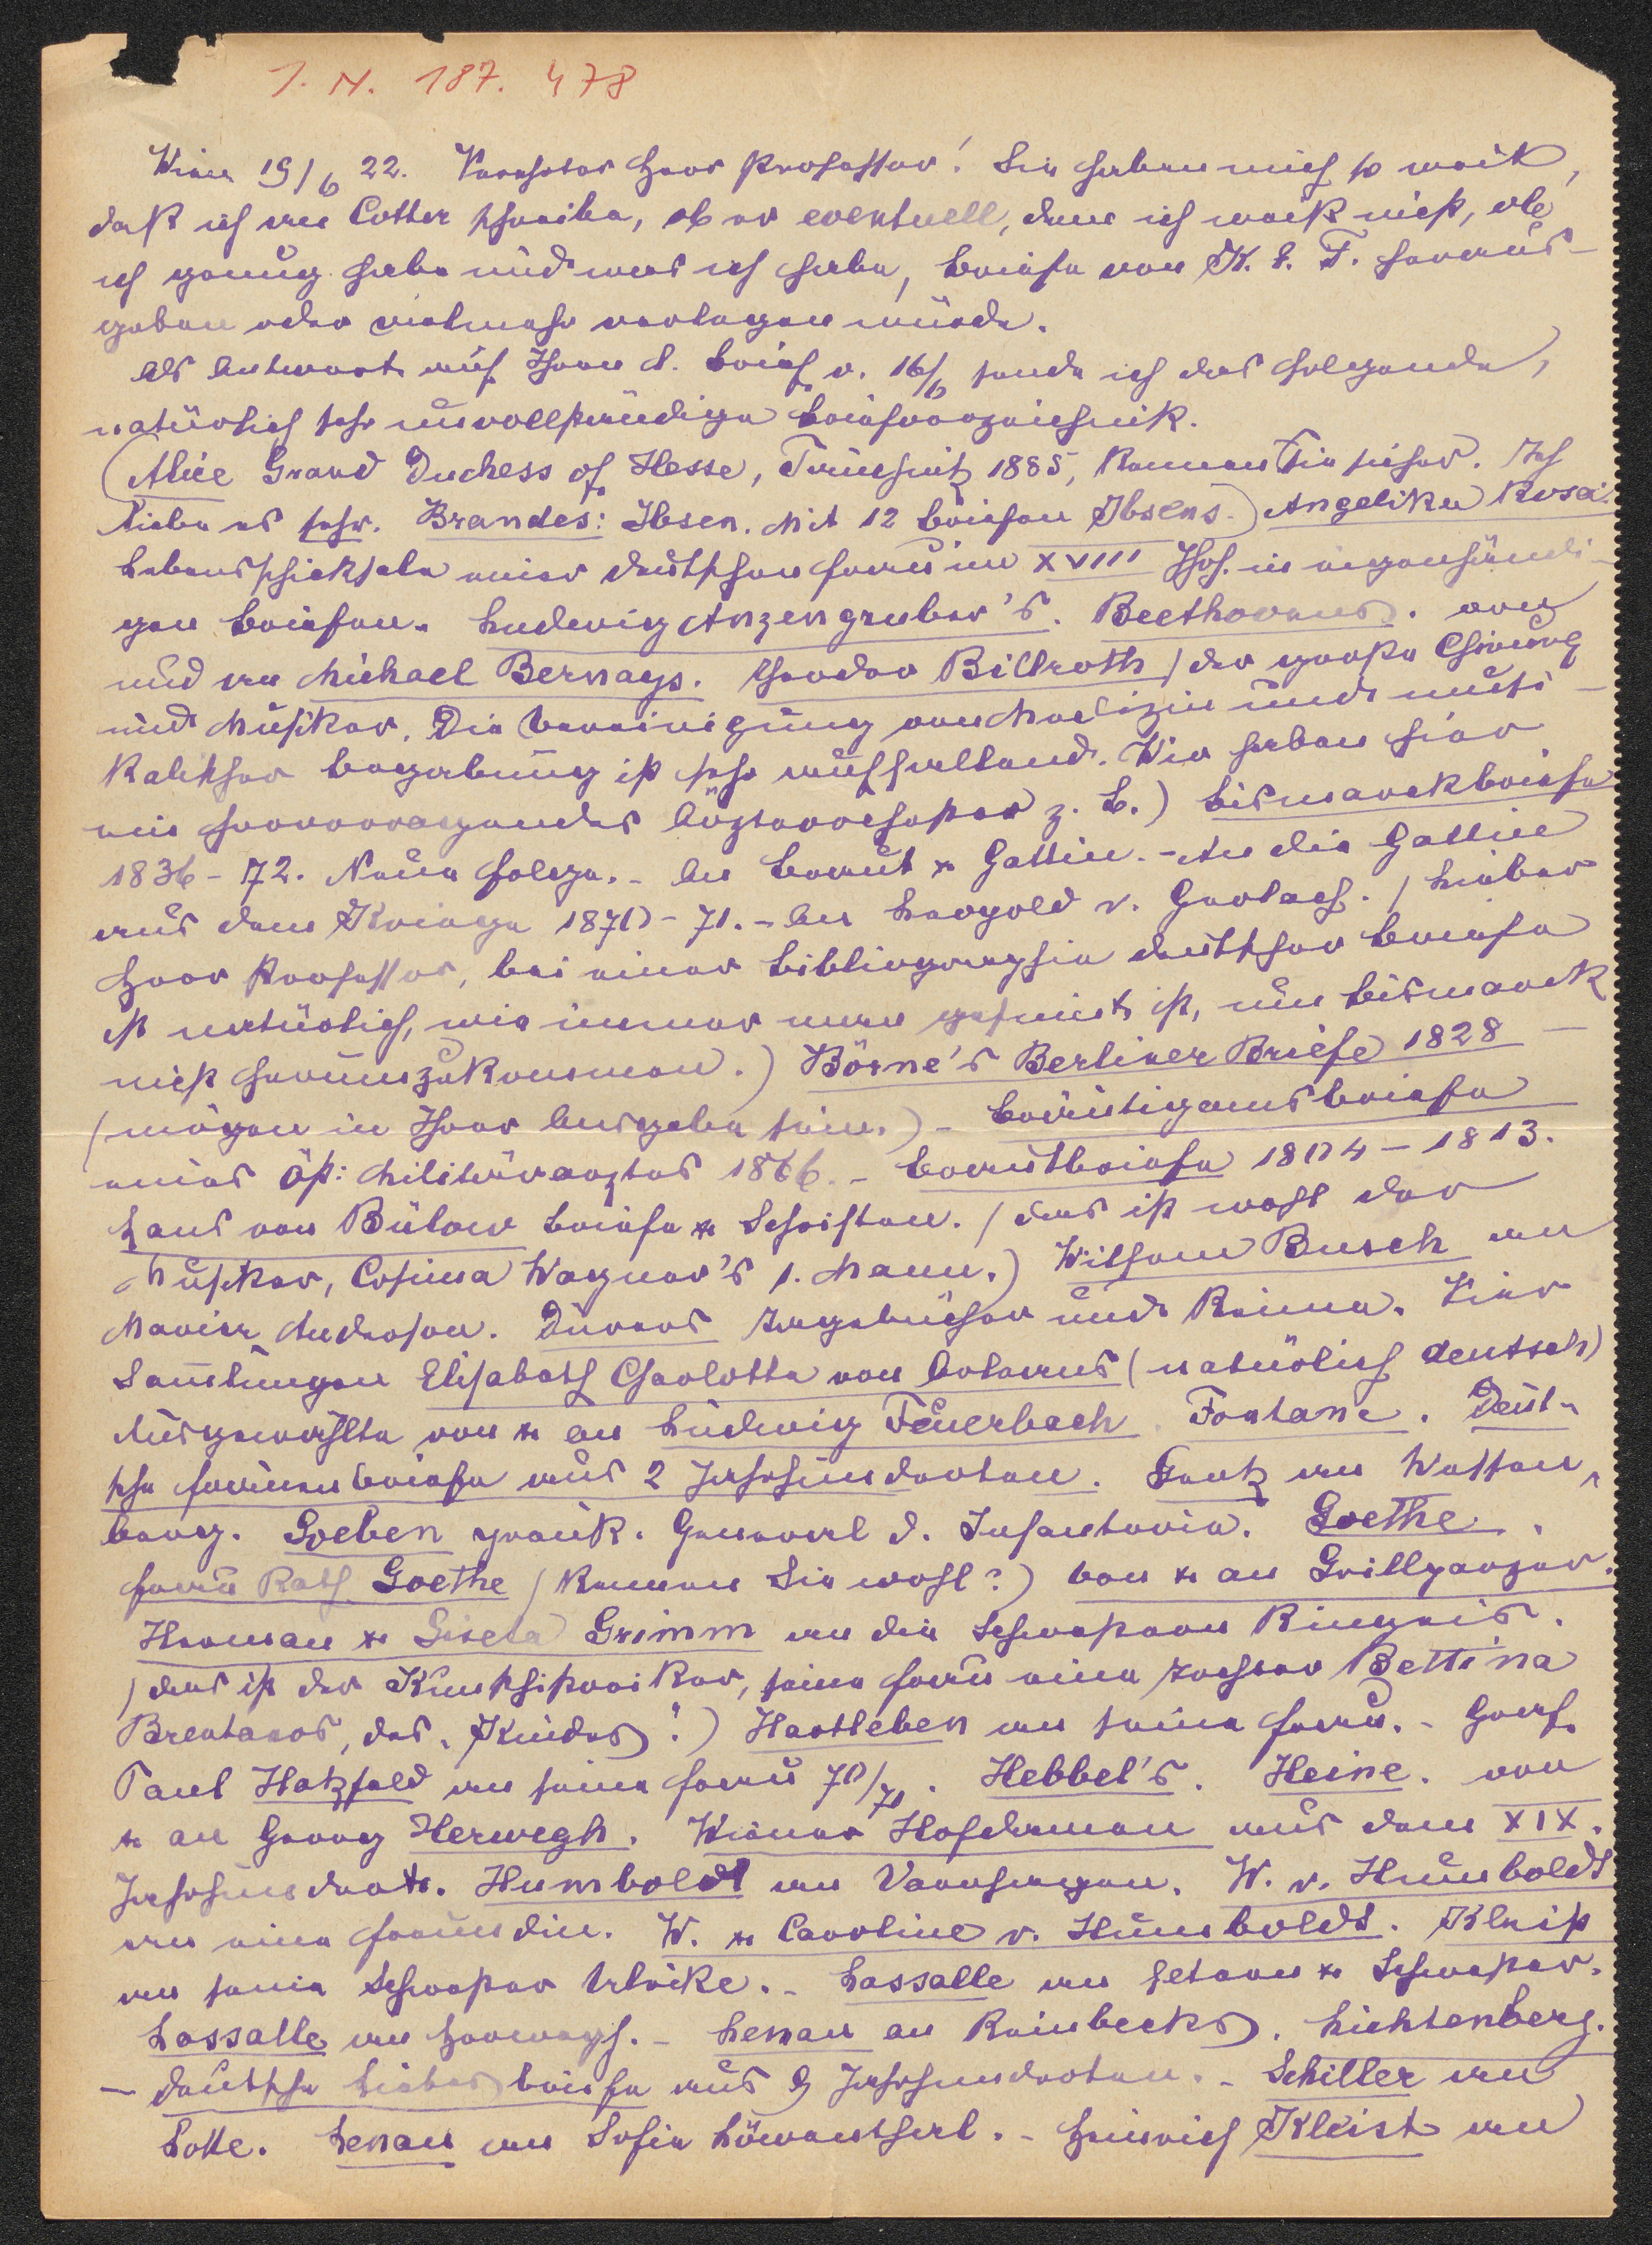 I. N. 187.478
Wien 19/6 22. Verehrter Herr Professor! Sie haben mich so weit,
daß ich an Cotta schreibe, ob er eventuell, denn ich weiß nicht, ob
ich genug habe und was ich habe, Briefe von K. E. F. heraus-
geben oder vielmehr verlegen würde.
Als Antwort auf Ihren l. Brief v. 16/6 sende ich das folgende,
natürlich sehr unvollständige Briefverzeichnis.
(Alice Grand Duchess of Hesse, Tauchnitz 1885, kennen Sie sicher. Ich
liebe es sehr. Brandes: Ibsen. Mit 12 Briefen Ibsens.) Angelika Rosa:
Lebensschicksale einer deutschen Frau im XVIII Jhh. in eigenhändi-
gen Briefen. Ludwig Anzengruber's. Beethovens. von
und an Michael Bernays. Theodor Billroth (der große Chirurg
und Musiker. Die Vereinigung von Medizin und musi-
kalischer Begabung ist sehr auffallend. Wir haben hier
ein hervorragendes Ärzteorchester z. B.) Bismarckbriefe
1836-72. Neue Folge. - An Braut u Gattin. - An die Gattin
aus dem Kriege 1870-71. - An Leopold v. Gerlach. (Lieber
Herr Professor, bei einer Bibliographie deutscher Briefe
ist natürlich, wie immer man gesinnt ist, um Bismarck
nicht herumzukommen.) Börne's Berliner Briefe 1828 -
(mögen in Ihrer Ausgabe sein.) - Bräutigamsbriefe
eines öst: Militärarztes 1866. - Brautbriefe 1804-1813.
Hans von Bülow Briefe u Schriften. (das ist wohl der
Musiker, Cosima Wagner's 1. Mann.) Wilhem Busch an
Maria Anderson. Dürers Tagebücher und Reime. Vier
Sammlungen Elisabeth Charlotte von Orleans (natürlich deutsch)
Ausgewählte von u an Ludwig Feuerbach. Fontane. Deut-
sche Frauenbriefe aus 2 Jahrhunderten. Gentz an Wessen-
berg. Goeben preuß. General d. Infanterie. Goethe.
Frau Rath Goethe (kennen Sie wohl?) Von u an Grillparzer.
Herman u Gisela Grimm an die Schwestern Ringseis.
(das ist der Kunsthistoriker, seine Frau eine Tochter Bettina
Brentanos, des „Kindes“.) Hartleben an seine Frau. - Graf
Paul Hatzfeld an seine Frau 70/71. Hebbel's. Heine. von
u an Georg Herwegh. Wiener Hofdamen aus dem XIX.
Jahrhundert. Humboldt an Varnhagen. W. v. Humboldt
an eine Freundin. W. u Caroline v. Humboldt. Kleist
an seine Schwester Ulrike. - Lassalle an Eltern u Schwester.
Lassalle an Herwegh. - Lenau an Reinbecks. Lichtenberg.
- Deutsche Liebesbriefe aus 9 Jahrhunderten. - Schiller an
Lotte. Lenau an Sofie Löwenthal. - Heinrich Kleist an